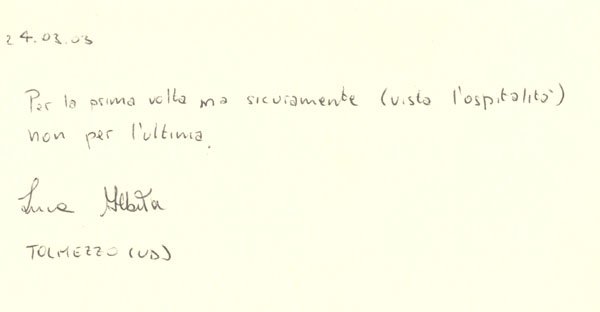 24.03.03
Per la prima volta ma sicuramente (vista l'ospitalità)
non per l'ultima.
Luca
TOLMEZZO (UD)